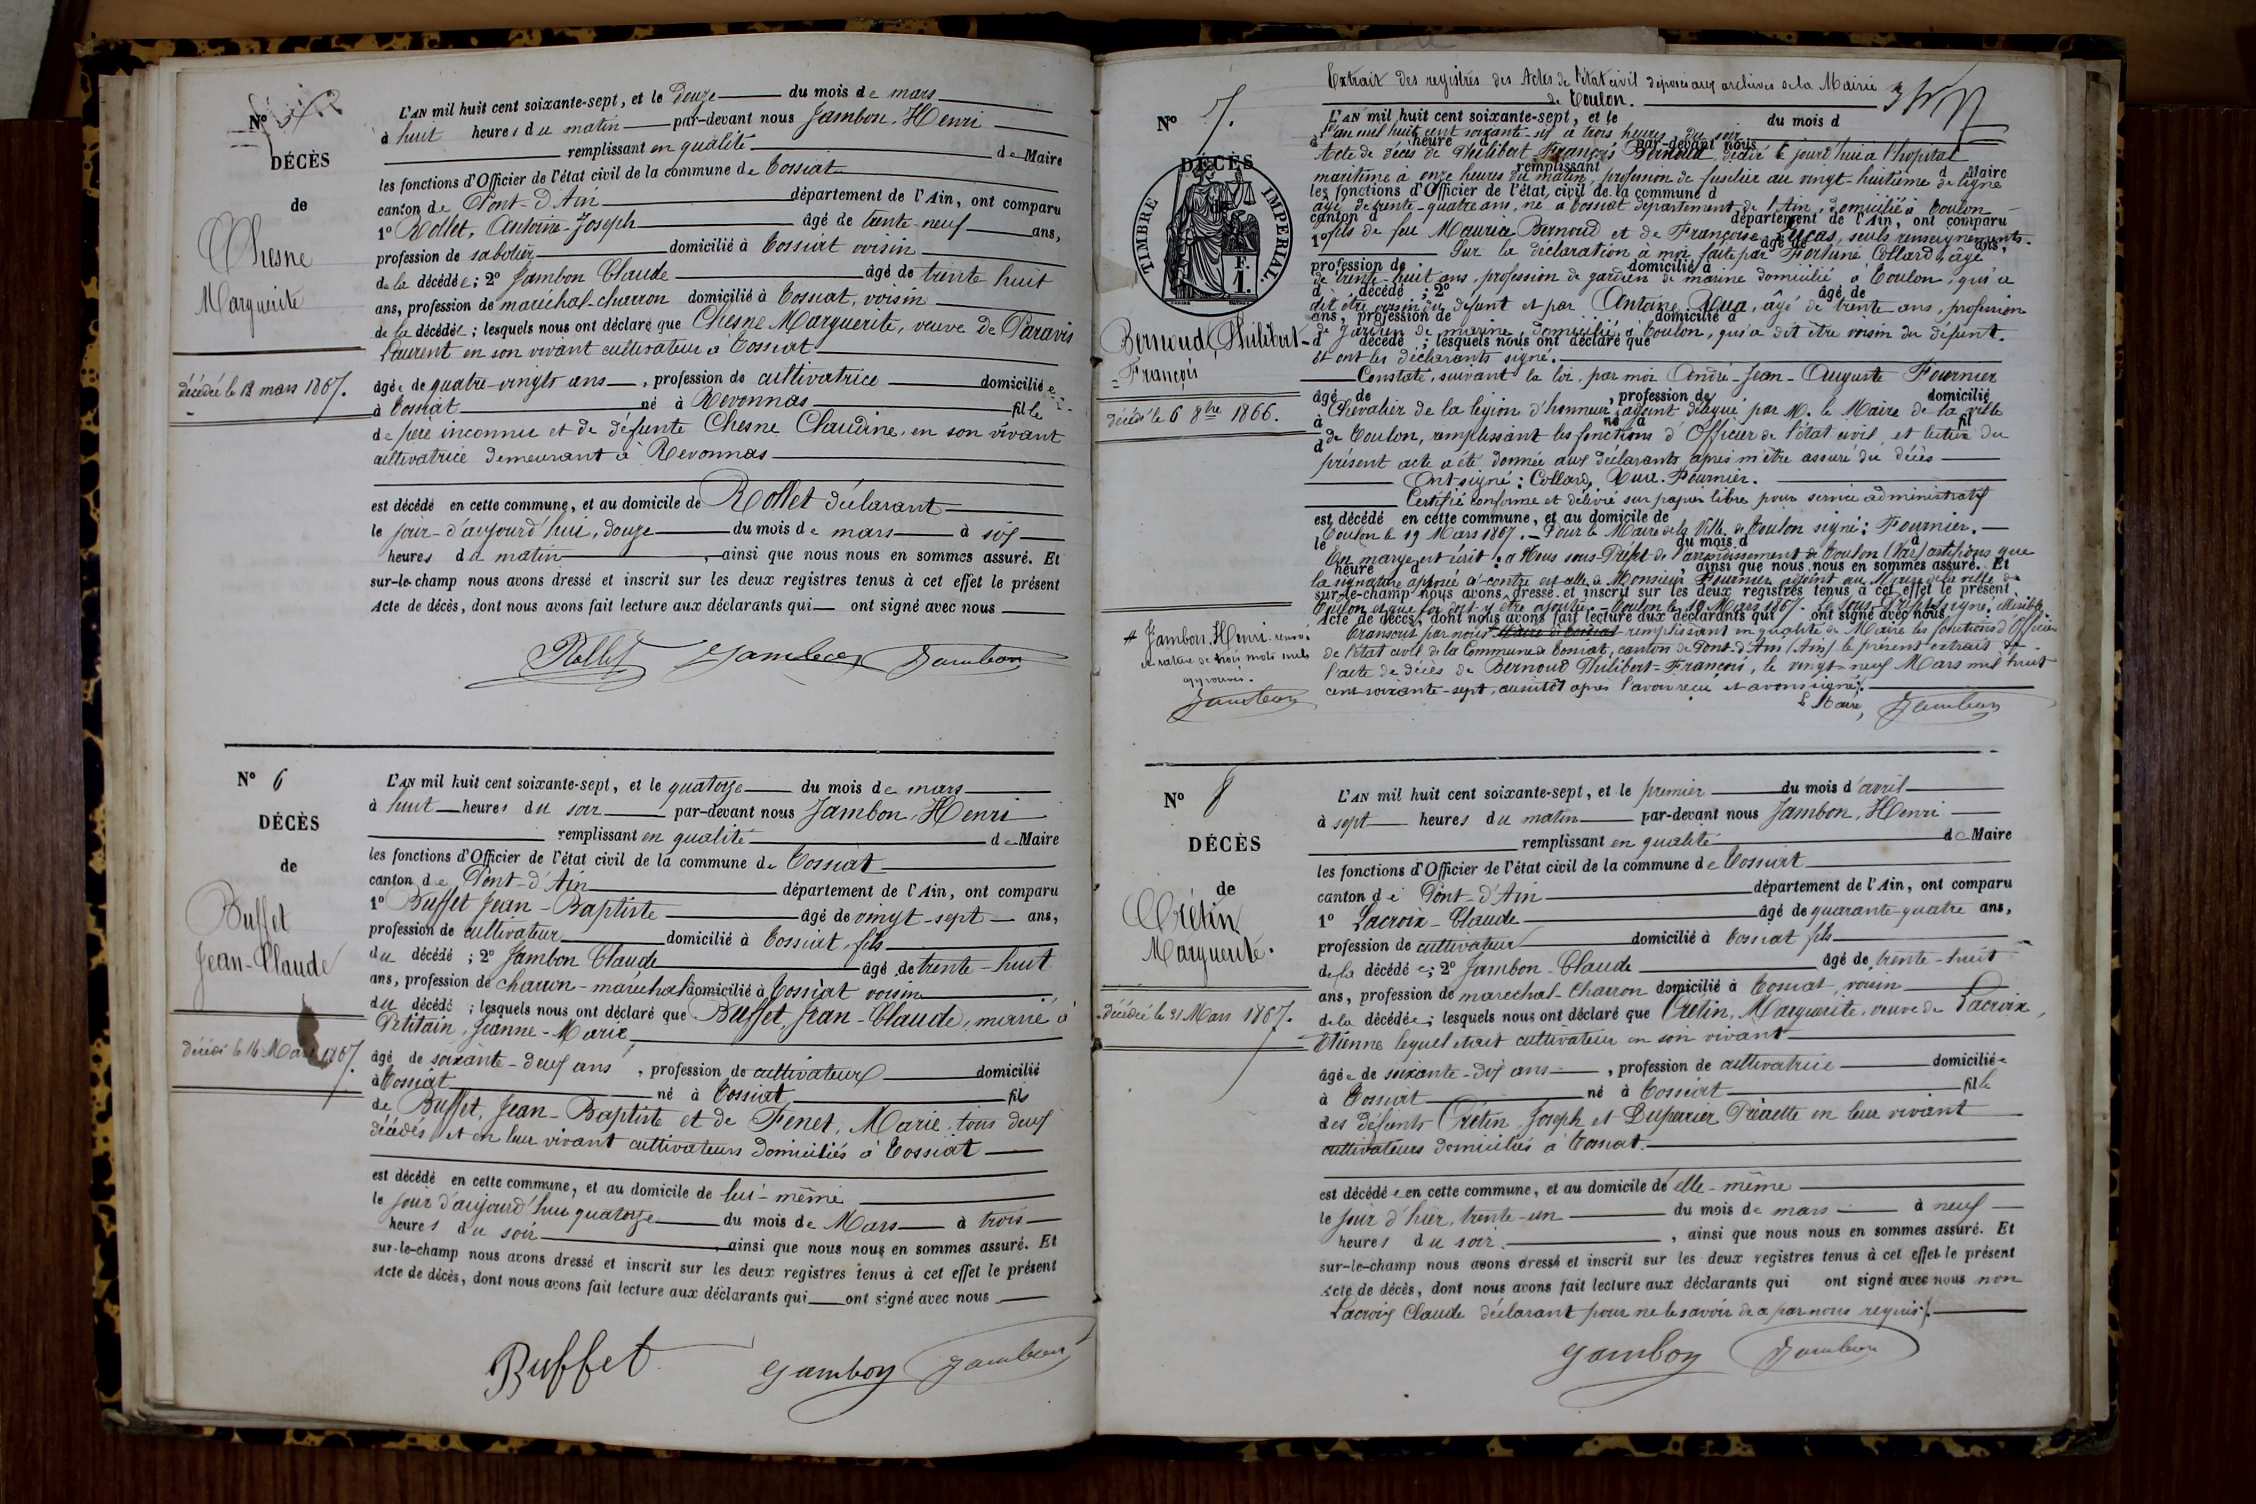 L'AN mil huit cent soixante-sept, et le douze du mois de mars
à huit heures du matin par-devant nous Jambon, Henri
remplissant en qualité de Maire
les fonctions d'Officier de l'état civil de la commune de Tossiat
canton de Pont-d'Ain département de l'Ain, ont comparu
1° Rollet, Antoine-Joseph âgé de trente-neuf ans,
profession de sabotier domicilié à Tossiat voisin
de la décédée; 2° Jambon Claude âgé de trente huit
ans, profession de maréchal-charron domicilié à Tossiat, voisin
de la décédée; lesquels nous ont déclaré que Chesne Marguerite, veuve de Paravis
Laurent en son vivant cultivateur à Tossiat
âgée de quatre-vingts ans, profession de cultivatrice domiciliée
à Tossiat né à Revonnas fille
de père inconnu et de défunte Chesne Claudine, en son vivant
cultivatrice demeurant à Revonnas
est décédé en cette commune, et au domicile de Rollet déclarant
le jour-d'aujourd'hui, douze du mois de mars à six
heures du matin, ainsi que nous nous en sommes assuré. Et
sur-le-champ nous avons dressé et inscrit sur les deux registres tenus à cet effet le présent
Acte de décès, dont nous avons fait lecture aux déclarants qui ont signé avec nous
Rollet Jambon Jambon
N°
DÉCÈS
de
Chesne
Marguerite
décédée le 12 mars 1867.
N° 6
DÉCÈS
de
Buffet
Jean-Claude
décédé le 14 Mars 1867.
L'AN mil huit cent soixante-sept, et le quatorze du mois de mars
à huit heures du soir par-devant nous Jambon, Henri
remplissant en qualité de Maire
les fonctions d'Officier de l'état civil de la commune de Tossiat
canton de Pont-d'Ain département de l'Ain, ont comparu
1° Buffet Jean-Baptiste âgé de vingt-sept ans,
profession de cultivateur domicilié à Tossiat, fils
du décédé; 2° Jambon Claude âgé de trente-huit
ans, profession de charron-maréchal domicilié à Tossiat voisin
du décédé; lesquels nous ont déclaré que Buffet, Jean-Claude, marié à
Petitain, Jeanne-Marie
âgé de soixante-deux ans, profession de cultivateur domicilié
à Tossiat né à Tossiat fils
de Buffet, Jean-Baptiste et de Fenet, Marie, tous deux
décédés et en leur vivant cultivateurs domiciliés à Tossiat
est décédé en cette commune, et au domicile de lui-même
le jour d'aujourd'hui quatorze du mois de Mars à trois
heures du soir, ainsi que nous nous en sommes assuré. Et
sur-le-champ nous avons dressé et inscrit sur les deux registres tenus à cet effet le présent
Acte de décès, dont nous avons fait lecture aux déclarants qui ont signé avec nous
Buffet Jambon Jambon
N° 7.
DÉCÈS
TIMBRE IMPERIAL.
F.
1.
Bernoud, Philibert-
François
décédé le 6 8bre 1866.
# Jambon Henri renvoi
et rature de trois mots nuls
approuvés.
Jambon
Extrait des registres des Actes de l'état civil déposés aux archives de la Mairie
de Toulon.
L'AN mil huit cent soixante-sept, et le du mois d
L'an mil huit cent soixante-six à trois heures du soir
à heure d par-devant nous
Acte de décès de Philibert François Bernoud, décédé ce jourd'hui à l'hôpital
remplissant d Maire
maritime à onze heures du matin, profession de fusilier au vingt-huitième de ligne
les fonctions d'Officier de l'état civil de la commune d
âgé de trente-quatre ans, né à Tossiat département de l'Ain, domicilié à Toulon
canton d département de l'Ain, ont comparu
1° âgé de ans,
fils de feu Maurice Bernoud et de Françoise Lucas, seuls renseignements.
Sur la déclaration à moi faite par Fortuné Collard, âgé
profession de domicilié à
de trente-huit ans, profession de gardien de marine domicilié à Toulon, qui a
d décédé ; 2° âgé de
dit être voisin du défunt et par Antoine, âgé de trente ans, profession
ans, profession de domicilié à
de gardien de marine, domicilié à Toulon, qui a dit être voisin du défunt.
d décédé ; lesquels nous ont déclaré que
et ont les déclarants signé.
Constaté, suivant la loi, par moi André-Jean-Auguste Fournier
âgé de , profession de domicilié
Chevalier de la légion d'honneur, adjoint délégué par M. le Maire de la ville
à né à fil
de Toulon, remplissant les fonctions d'Officier de l'état civil, et lecture du
d
présent acte a été donnée aux déclarants après m'être assuré du décès
Ont signé: Collard, Fournier.
Certifié conforme et délivré sur papier libre pour service administratif
est décédé en cette commune, et au domicile de
Toulon le 19 Mars 1867. - Pour le Maire de la Ville de Toulon signé: Fournier.
le du mois d à
En marge est écrit: Nous sous-Préfet de l'arrondissement de Toulon (Var) certifions que
heure d , ainsi que nous nous en sommes assuré. Et
la signature apposée ci-contre est celle de Monsieur Fournier adjoint au Maire de la ville de
sur-le-champ nous avons dressé et inscrit sur les deux registres tenus à cet effet le présent
Toulon et que foi doit y être ajoutée. - Toulon le 19 Mars 1867. Le Sous-Préfet signé, illisible.
Acte de décès, dont nous avons fait lecture aux déclarants qui ont signé avec nous
Transcrit par nous # remplissant en qualité de Maire les fonctions d'Officier
de l'état civil de la Commune de Tossiat, canton de Pont-d'Ain (Ain) le présent extrait de
l'acte de décès de Bernoud Philibert-François, le vingt-neuf Mars mil huit
cent soixante-sept, aussitôt après l'avoir reçu et avons signé.
Le Maire,
Jambon
N° 8
DÉCÈS
de
Crétin
Marguerite.
décédée le 31 Mars 1867.
L'AN mil huit cent soixante-sept, et le premier du mois d'avril
à sept heures du matin par-devant nous Jambon, Henri
remplissant en qualité de Maire
les fonctions d'Officier de l'état civil de la commune de Tossiat
canton de Pont-d'Ain département de l'Ain, ont comparu
1° Lacroix-Claude âgé de quarante-quatre ans,
profession de cultivateur domicilié à Tossiat fils
de la décédée; 2° Jambon-Claude âgé de trente-huit
ans, profession de maréchal-Charron domicilié à Tossiat, voisin
de la décédée; lesquels nous ont déclaré que Crétin, Marguerite, veuve de Lacroix,
Etienne lequel était cultivateur en son vivant
âgée de soixante-dix ans, profession de cultivatrice domiciliée
à Tossiat né à Tossiat fille
des défunts Crétin, Joseph et Duparier Pierrette en leur vivant
cultivateurs domiciliés à Tossiat.
est décédée en cette commune, et au domicile de elle-même
le jour d'hier, trente-un du mois de mars à neuf
heures du soir, ainsi que nous nous en sommes assuré. Et
sur-le-champ nous avons dressé et inscrit sur les deux registres tenus à cet effet le présent
Acte de décès, dont nous avons fait lecture aux déclarants qui ont signé avec nous non
Lacroix Claude déclarant pour ne le savoir de ce par nous requis.
Jambon Jambon